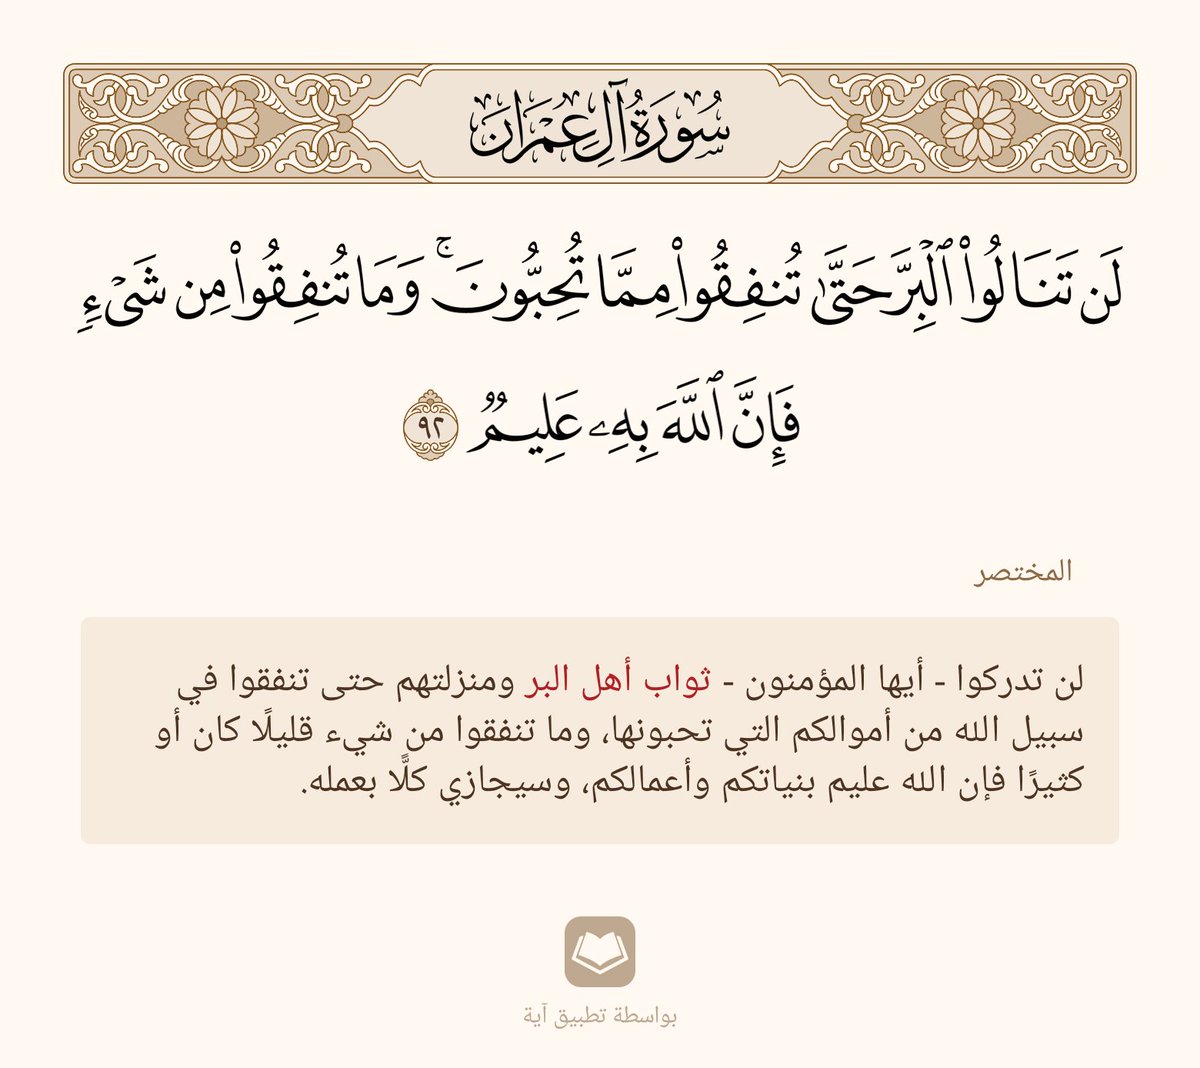 سُورَةُ آلِ عِمْرَان
لَن تَنَالُوا۟ ٱلْبِرَّ حَتَّىٰ تُنفِقُوا۟ مِمَّا تُحِبُّونَ ۚ وَمَا تُنفِقُوا۟ مِن شَىْءٍ
فَإِنَّ ٱللَّهَ بِهِۦ عَلِيمٌ ٩٢
المختصر
لن تدركوا - أيها المؤمنون - ثواب أهل البر ومنزلتهم حتى تنفقوا في
سبيل الله من أموالكم التي تحبونها، وما تنفقوا من شيء قليلًا كان أو
كثيرًا فإن الله عليم بنياتكم وأعمالكم، وسيجازي كلًّا بعمله.
بواسطة تطبيق آية